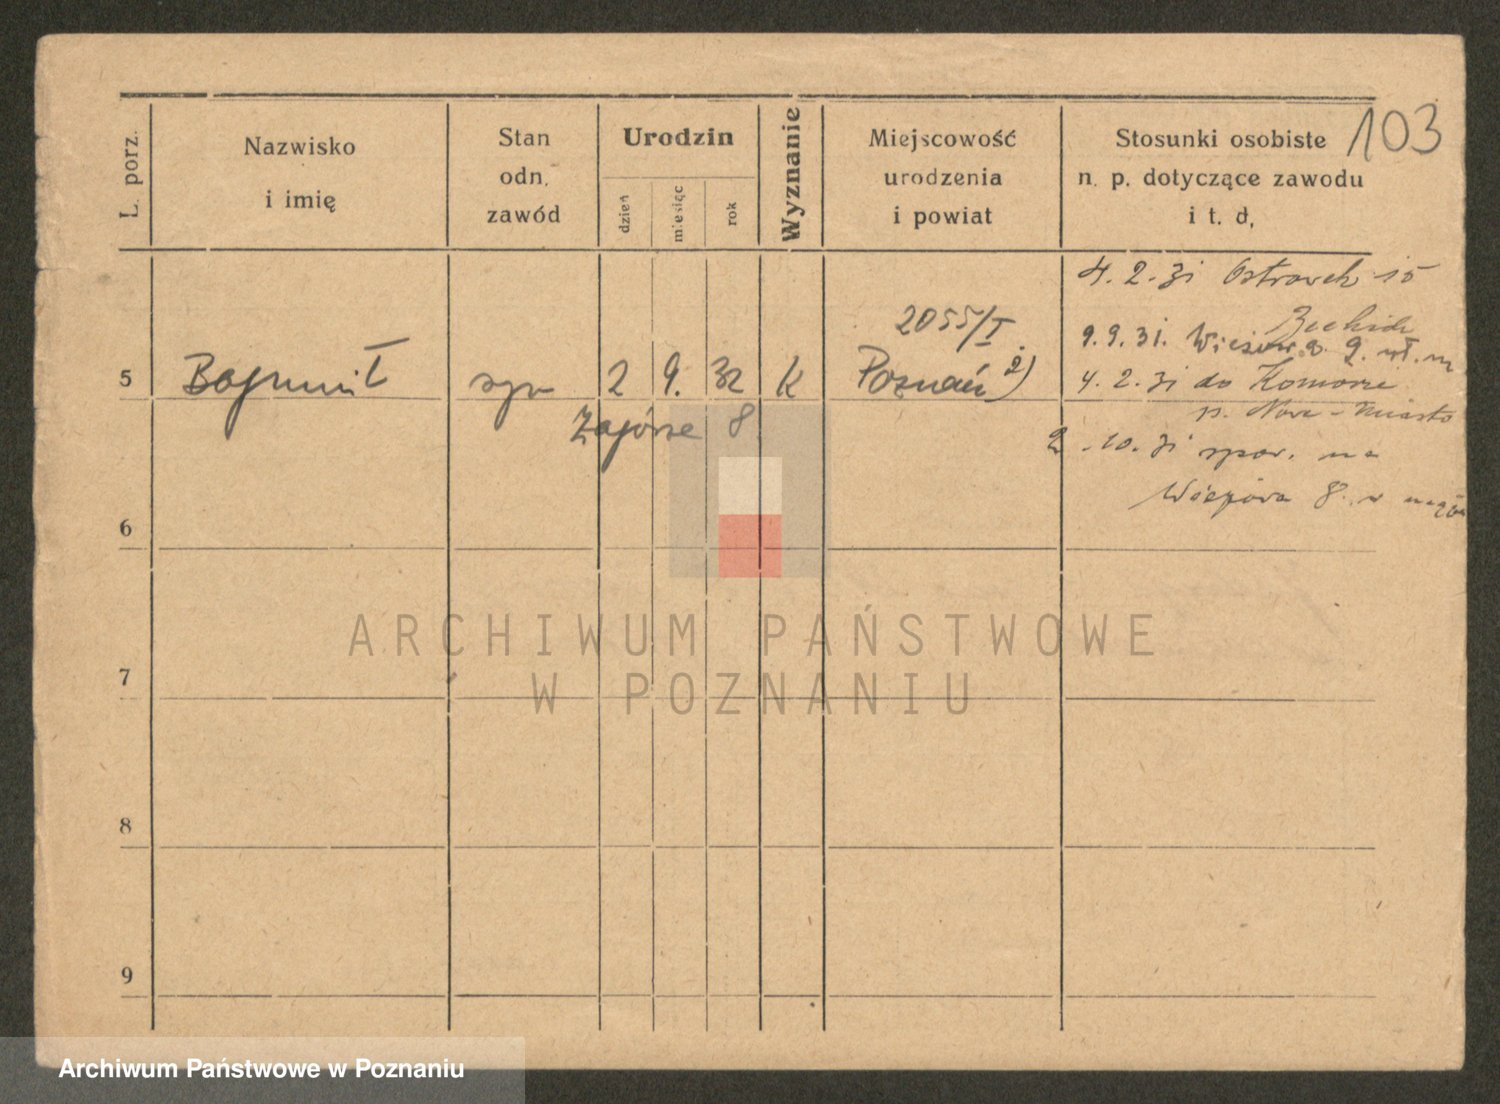 103
L. porz.
Nazwisko
i imię
Stan
odn.
zawód
Urodzin
dzień
miesiąc
rok
Wyznanie
Miejscowość
urodzenia
i powiat
Stosunki osobiste
n. p. dotyczące zawodu
i t. d.
4. 2. 31 Ostrówek 15
2055/I
9. 9. 31.
5 Bogumił syn 2 9. 32 K Poznań 2)
4. 2. 31 do Komorze
p. Nowe-Miasto
Zagórze 8
2. 10. 31
6
7
8
9
ARCHIWUM PAŃSTWOWE
W POZNANIU
Archiwum Państwowe w Poznaniu